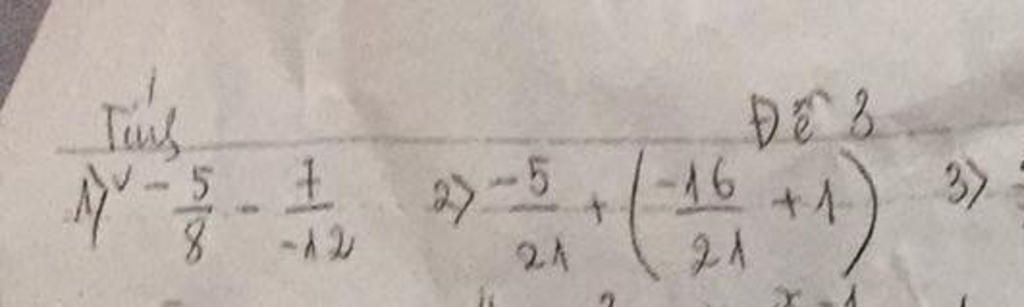 Tính Đề 3
1) - 5/8 - 7/-12 2) -5/21 + (-16/21 + 1) 3)